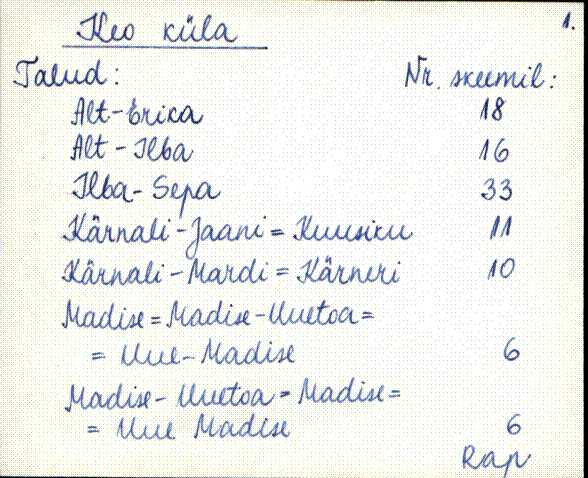 1.
Keo küla
Talud: Nr. skeemil:
Alt-Erika 18
Alt-Ilba 16
Ilba-Sepa 33
Kärnali-Jaani = Kuusiku 11
Kärnali-Mardi = Kärneri 10
Madise = Madise-Uuetoa =
= Uue-Madise 6
Madise-Uuetoa = Madise =
= Uue Madise 6
Rap